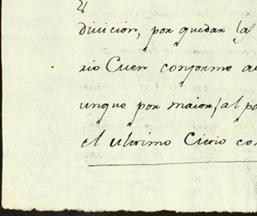 divicion, por quedar la
rio Cuer conforme a
unque por maior, al p
el ultimo Cirio co